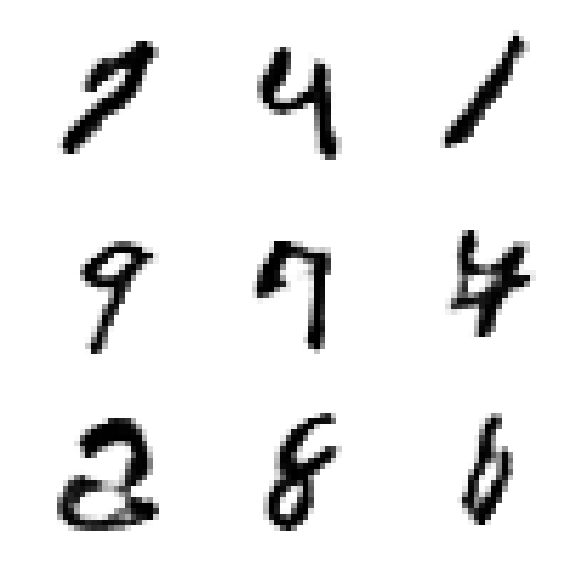 7 4 1
9 7 4
2 8 6